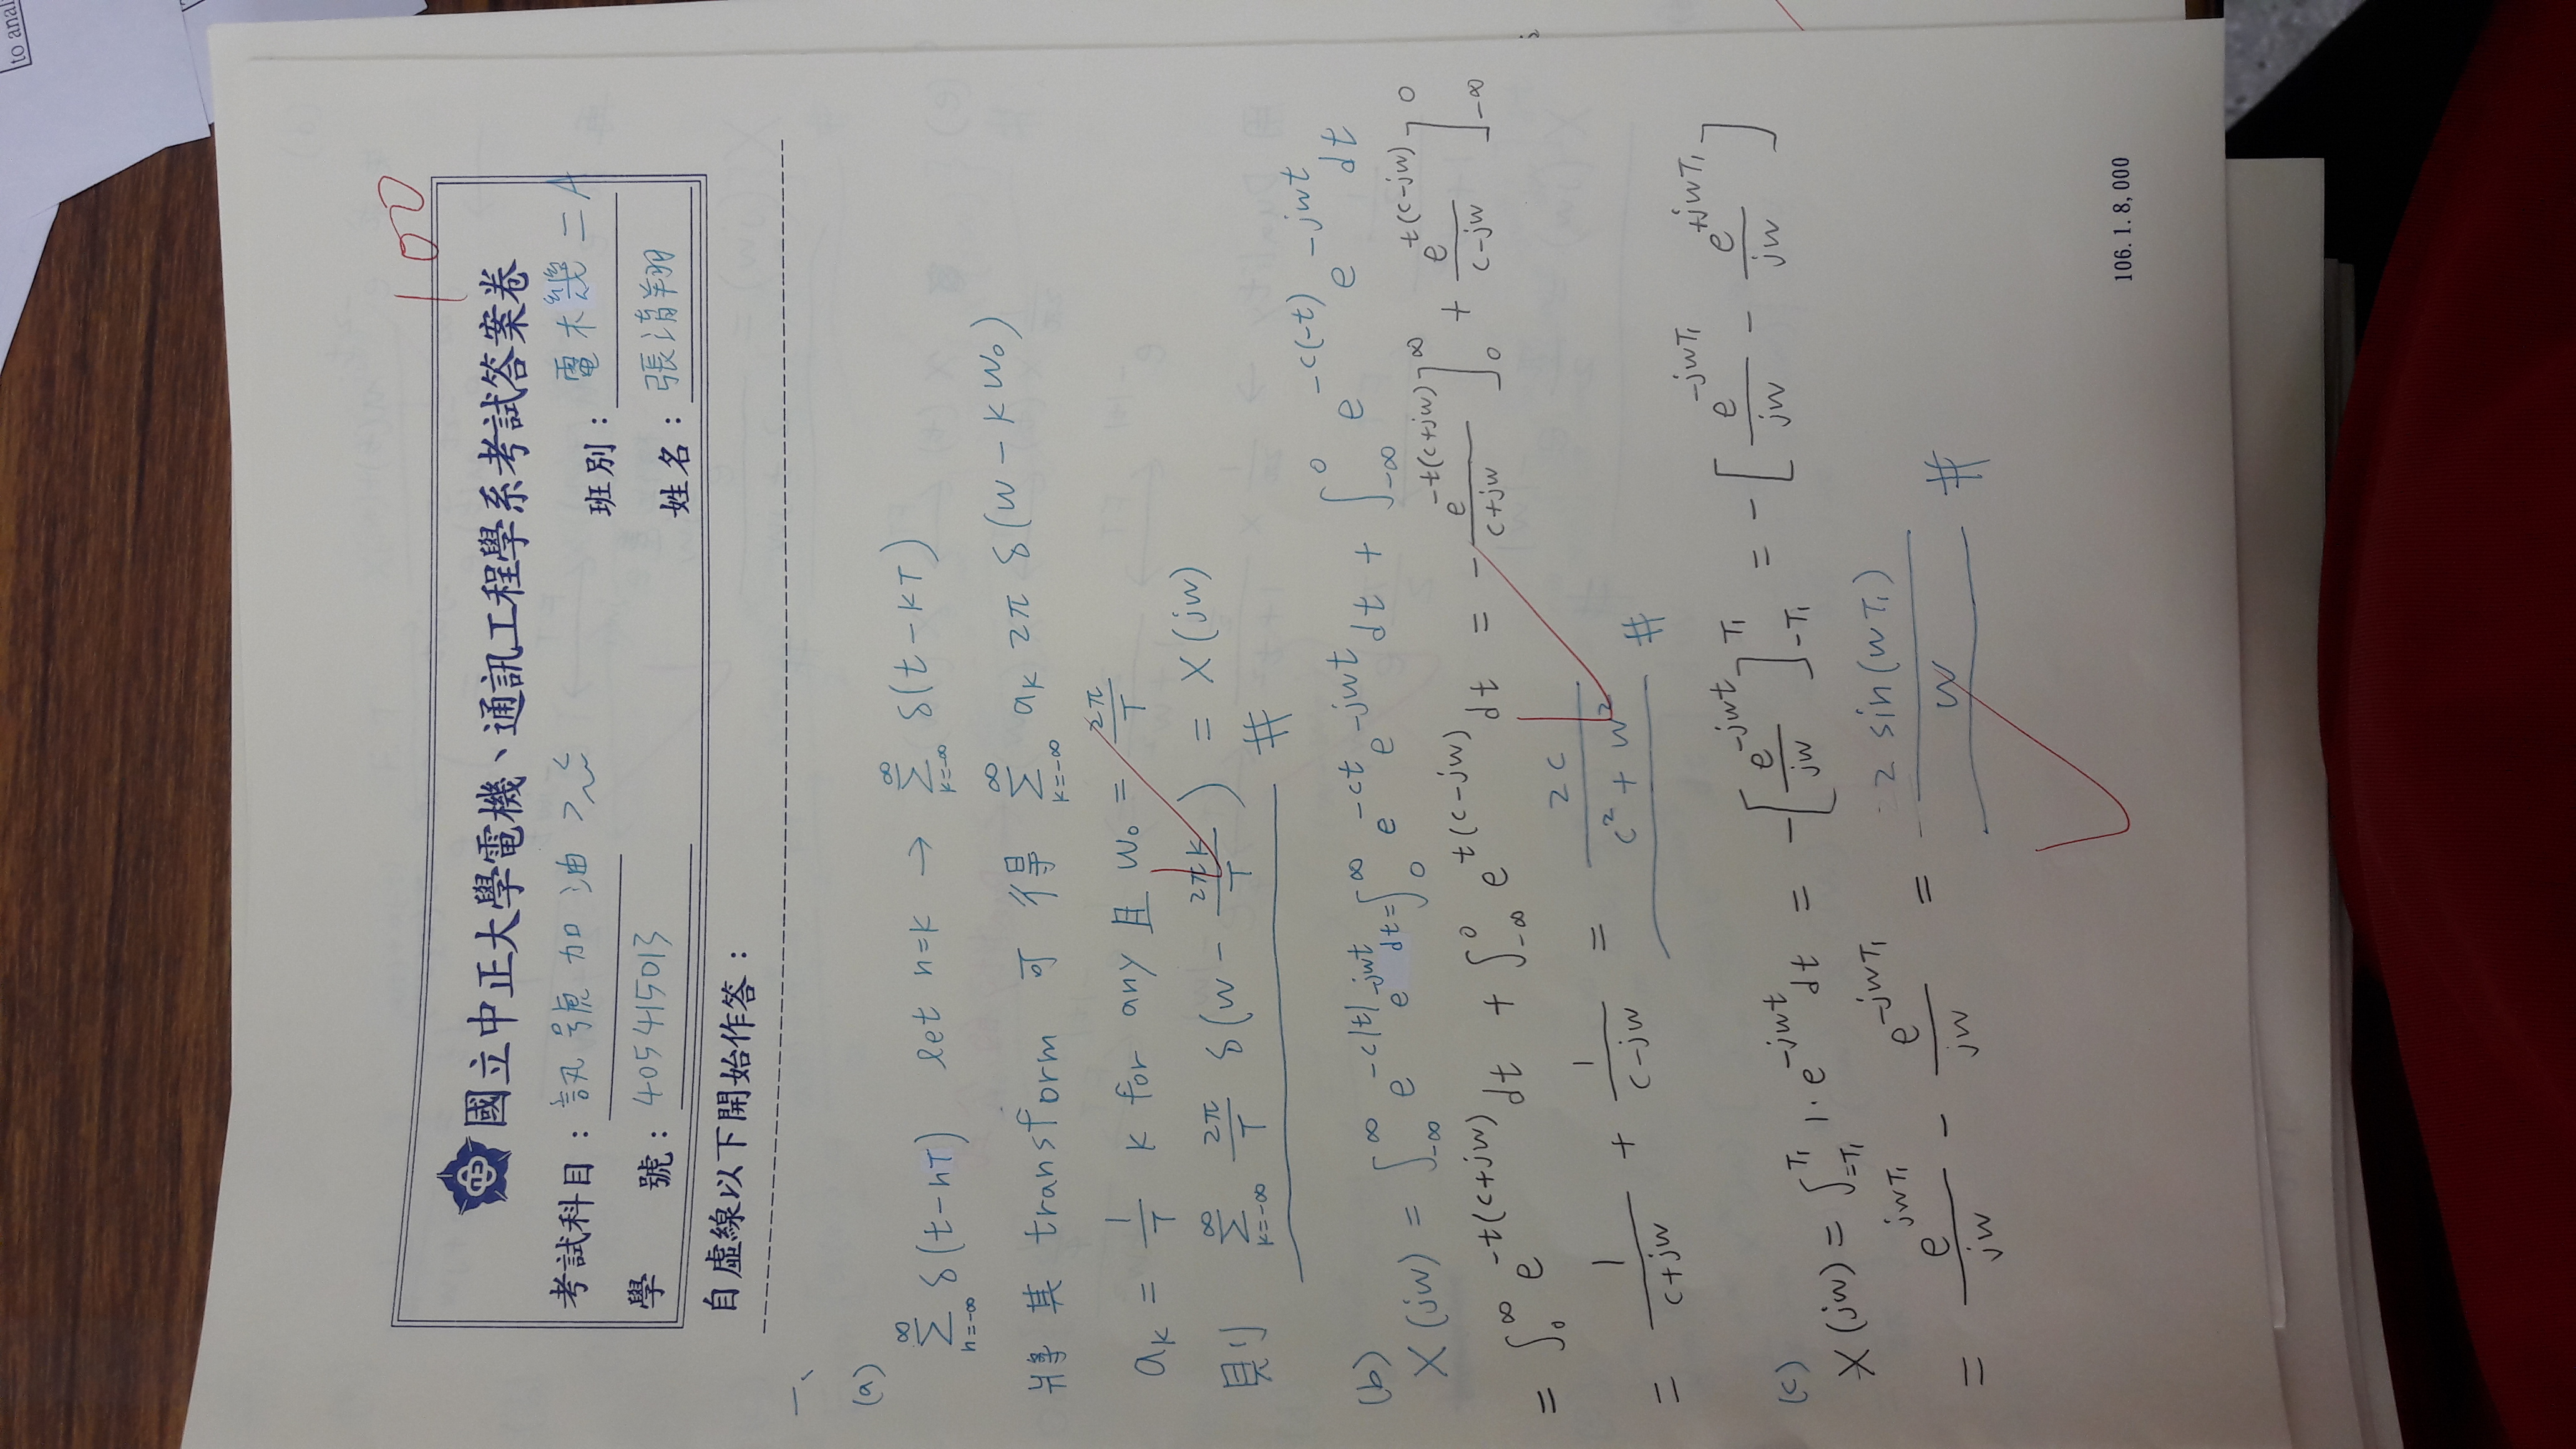 to anal
100
國立中正大學電機、通訊工程學系考試答案卷
考試科目：訊號加油 班別：電機二A
學 號：405415013 姓名：張清翔
自虛線以下開始作答：
一、
(a)
∑_{n=-∞}^{∞} δ(t-nT) let n=k → ∑_{k=-∞}^{∞} δ(t-kT)
將其 transform 可得 ∑_{k=-∞}^{∞} a_k 2π δ(w-kw₀)
a_k = 1/T k for any 且 w₀ = 2π/T
則 ∑_{k=-∞}^{∞} 2π/T δ(w - 2πk/T) = X(jw) #
(b)
X(jw) = ∫_{-∞}^{∞} e^{-c|t|} e^{-jwt} dt = ∫_{0}^{∞} e^{-ct} e^{-jwt} dt + ∫_{-∞}^{0} e^{-c(-t)} e^{-jwt} dt
= ∫_{0}^{∞} e^{-t(c+jw)} dt + ∫_{-∞}^{0} e^{t(c-jw)} dt = - e^{-t(c+jw)}/(c+jw) ]_{0}^{∞} + e^{t(c-jw)}/(c-jw) ]_{-∞}^{0}
= 1/(c+jw) + 1/(c-jw) = 2c/(c²+w²) #
(c)
X(jw) = ∫_{-T₁}^{T₁} 1·e^{-jwt} dt = -[ e^{-jwt}/jw ]_{-T₁}^{T₁} = -[ e^{-jwT₁}/jw - e^{+jwT₁}/jw ]
= e^{jwT₁}/jw - e^{-jwT₁}/jw = 2 sin(wT₁)/w #
106.1.8,000